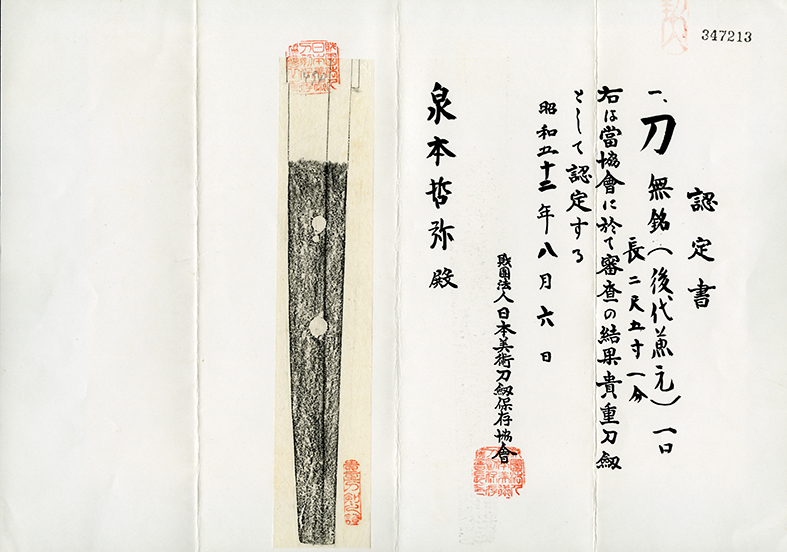 347213
認定書
一、刀 無銘(後代兼元) 一口
長二尺五寸一分
右は當協會に於て審査の結果貴重刀劔
として認定する
昭和五十二年八月六日
財團法人日本美術刀劔保存協會
泉本哲弥 殿